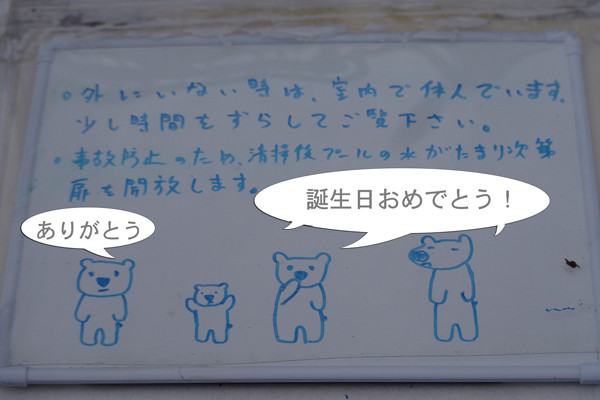 。外にいない時は、室内で休んでいます。
少し時間をずらしてご覧下さい。
。事故防止のため、清掃後プールの水がたまり次第
扉を開放します。
誕生日おめでとう！
ありがとう